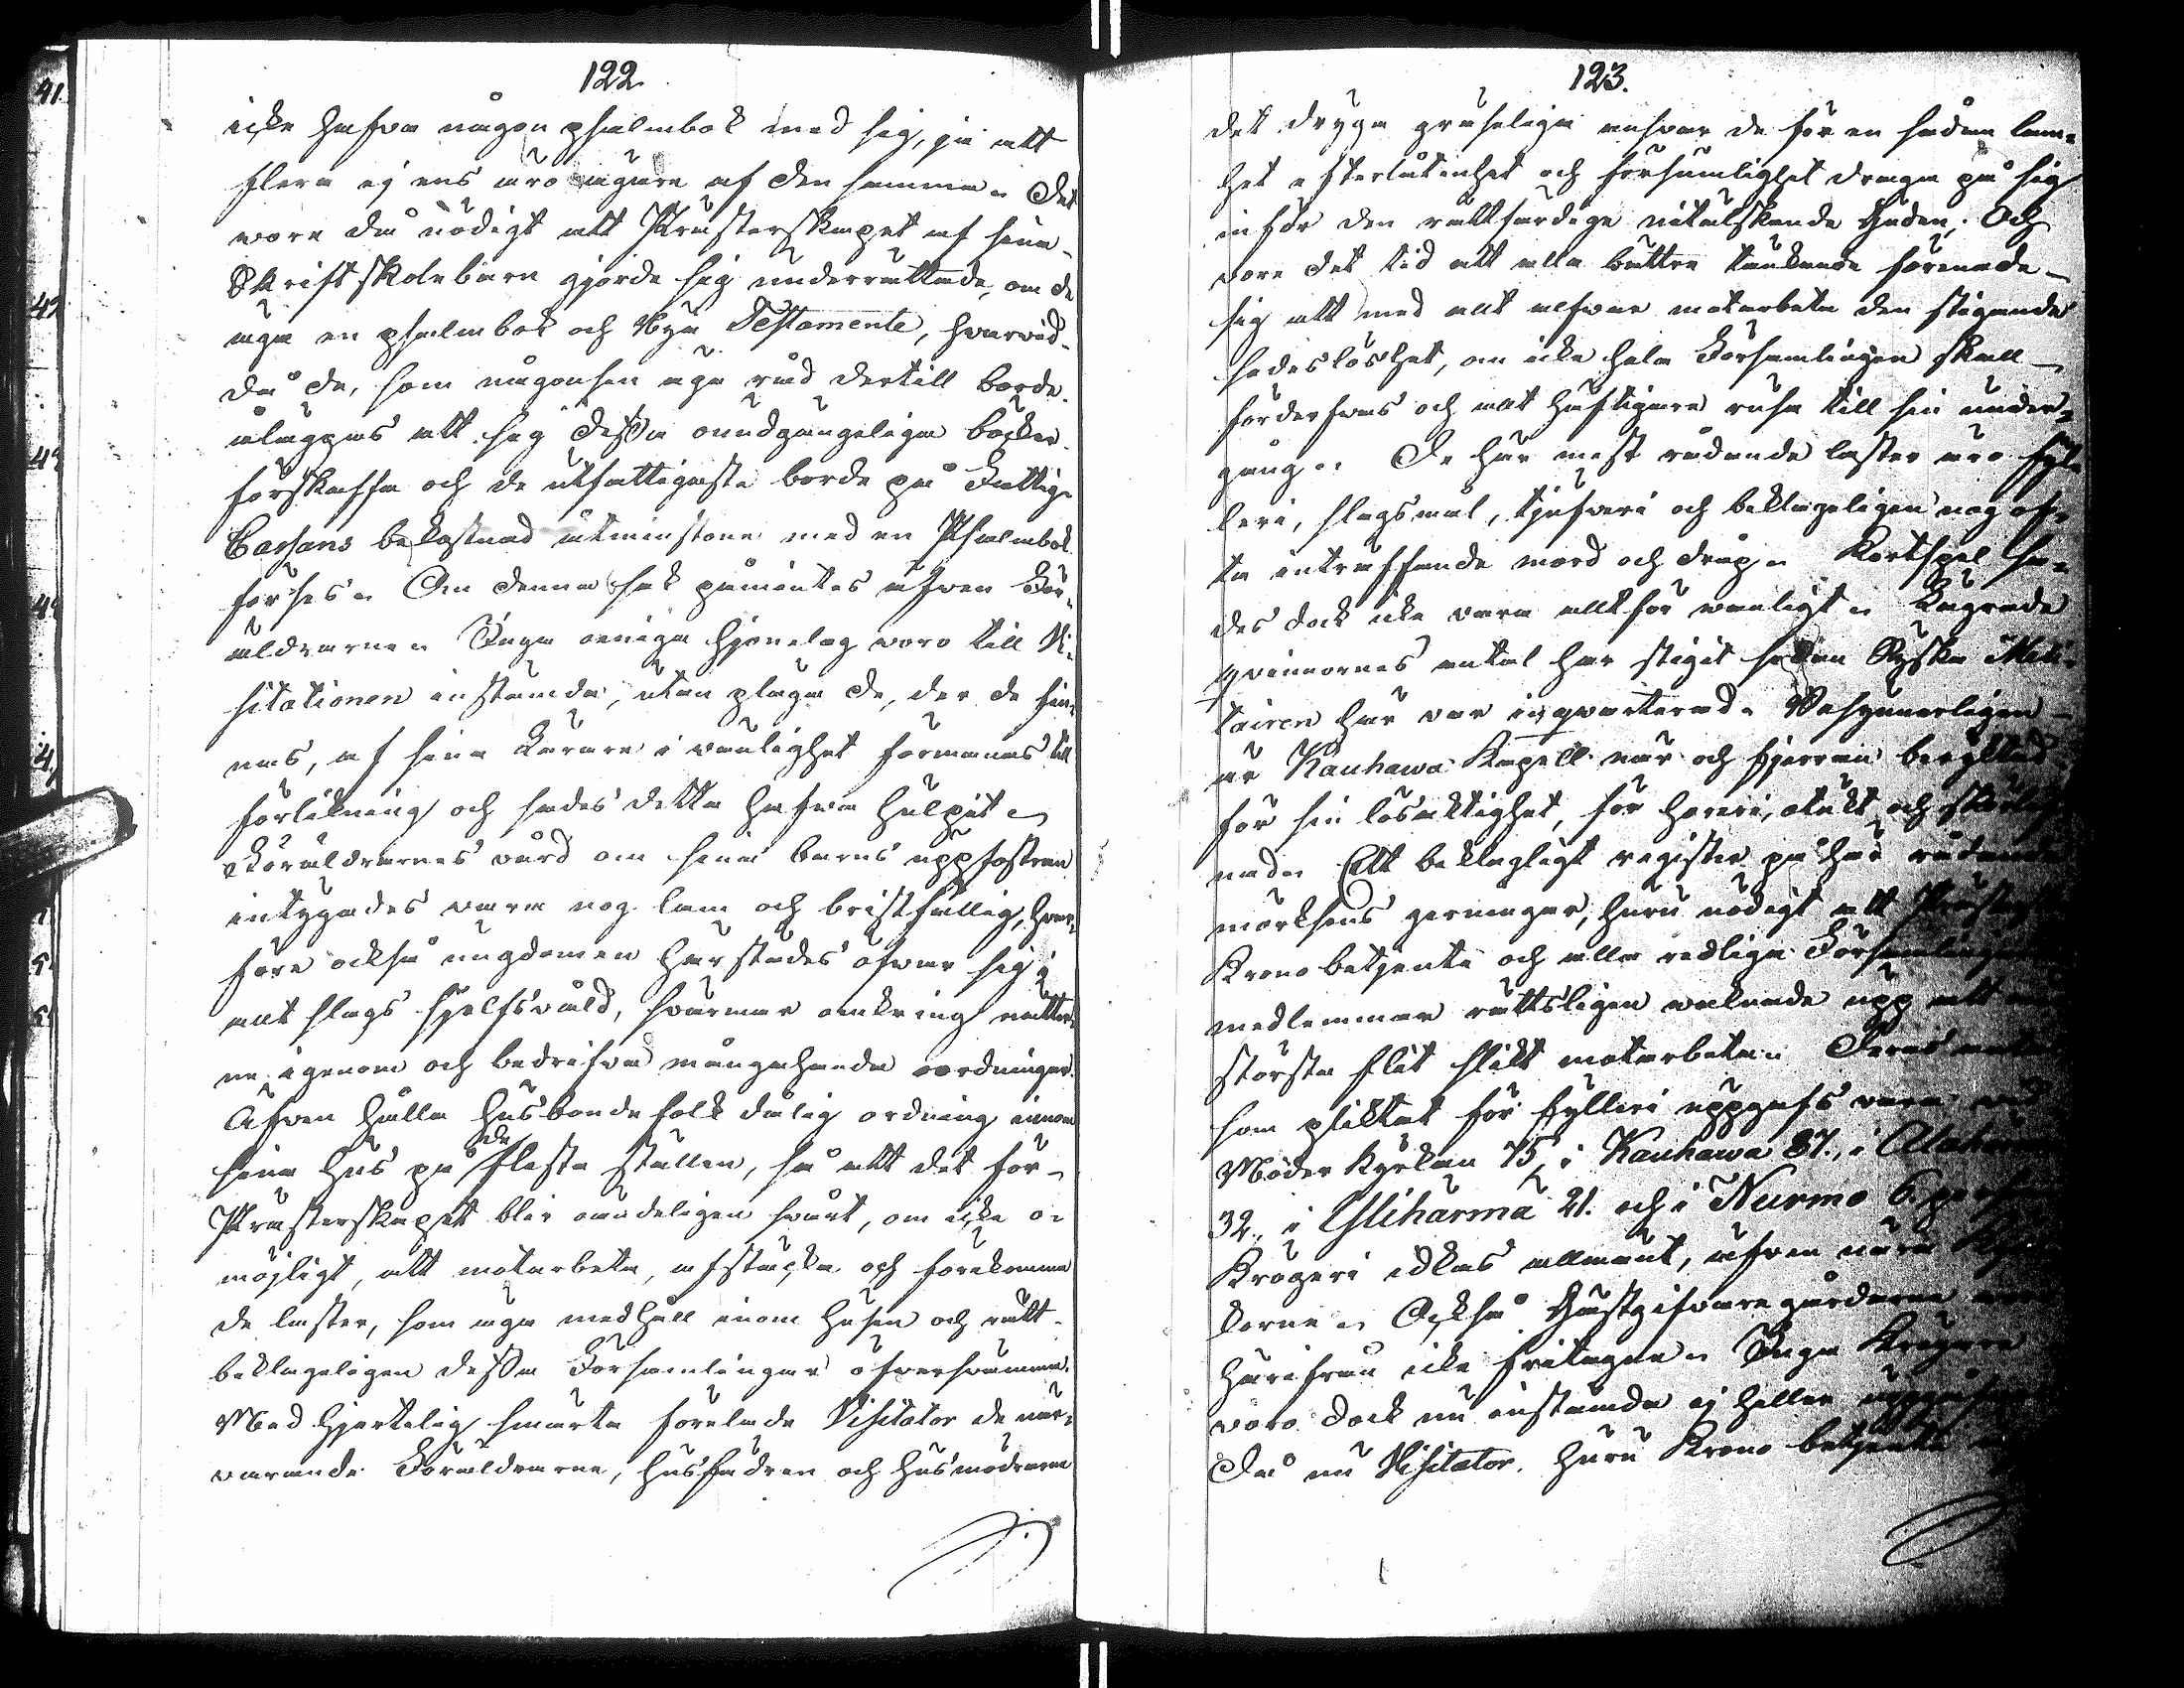 122.
icke hafva någon psalmbok med sig, ja att
flere ej ens äro ägare af den samma. Det
vore då nödigt att Presterskapet af sina
Skriftskolebarn gjorde sig underrättade, om de
äga en psalmbok och Nya Testamente, hvarvid
då de, som någonsin äga råd dertill borde
åläggas att sig dessa oundgängeliga böcker
förskaffa och de utfattigaste borde på Fattig
Cassans bekostnad åtminstone med en Psalmbok
förses. Om denna sak påmintes äfven För-
äldrarne. Inga oeniga hjonelag voro till Vi-
sitationen instämda, utan pläga de, der de fin-
nas, af sina Lärare i vänlighet förmanas till
förlikning och sades detta hafva hulpit.
Föräldrarnes vård om sina barns uppfostran
intygades vara nog lam och bristfällig, hvar-
före också ungdomen härstädes öfvar sig i
alt slags sjelfsvåld, svärmar omkring nätter-
na igenom och bedrifva mångahanda oordningar.
Äfven hålla Husbondefolk dålig ordning inom
sina hus på de flesta ställen, så att det för
Presterskapet blir omsideligen svårt, om icke o-
möjligt, att motarbeta, afstäcka och förekomma
de laster, som äga medhåll inom husen och rätt
beklageligen dessa Församlingar öfversvämma.
Med hjertelig smärta förelade Visitator de när-
varande Föräldrarne, husfädren och husmödrarne
123.
det dryga gruseliga ansvar de för en sådan lam-
het efterlåtenhet och försumlighet draga på sig
inför den rättfärdige nitälskande Guden; Och
vore det tid att alla bättre tänkande förenade
sig att med alt alfvar motarbeta den stigande
sedeslöshet, om icke hela Församlingen skall
förderfvas och alt hastigare rusa till sin under-
gång. De här mest rådande laster äro fyl-
leri, slagsmål, tjufveri och beklageligen nog of-
ta inträffande mord och dråp. Kortspel sa-
des dock icke vara altför vanligt. Lägrade
qvinnornes antal har stigit sedan Ryska Mili-
tairen här var inqvarterad. Besynnerligen
är Kauhawa Kapell när och fjerran beryktad
för sin lösaktighet, för horeri, otukt och
nad. Ett beklagligt register på här rådande
mörksens gerningar, huru nödigt att
Kronobetjente och alla redliga Församlingens
medlemmar rättsligen vaknade upp att
största flit slikt motarbeta. Deras antal
som pliktat för fylleri uppgafs vara vid
Moder Kyrkan 75, i Kauhawa 87., i
32., i Ylihärmä 21. och i Nurmo 6
Krögeri idkas allmänt, äfven nära
korna. Också Gästgifvaregårdarna
härifrån icke fritagna. Inga Krögare
voro dock nu instämda ej heller
Då nu Visitator. huru Krono betjente